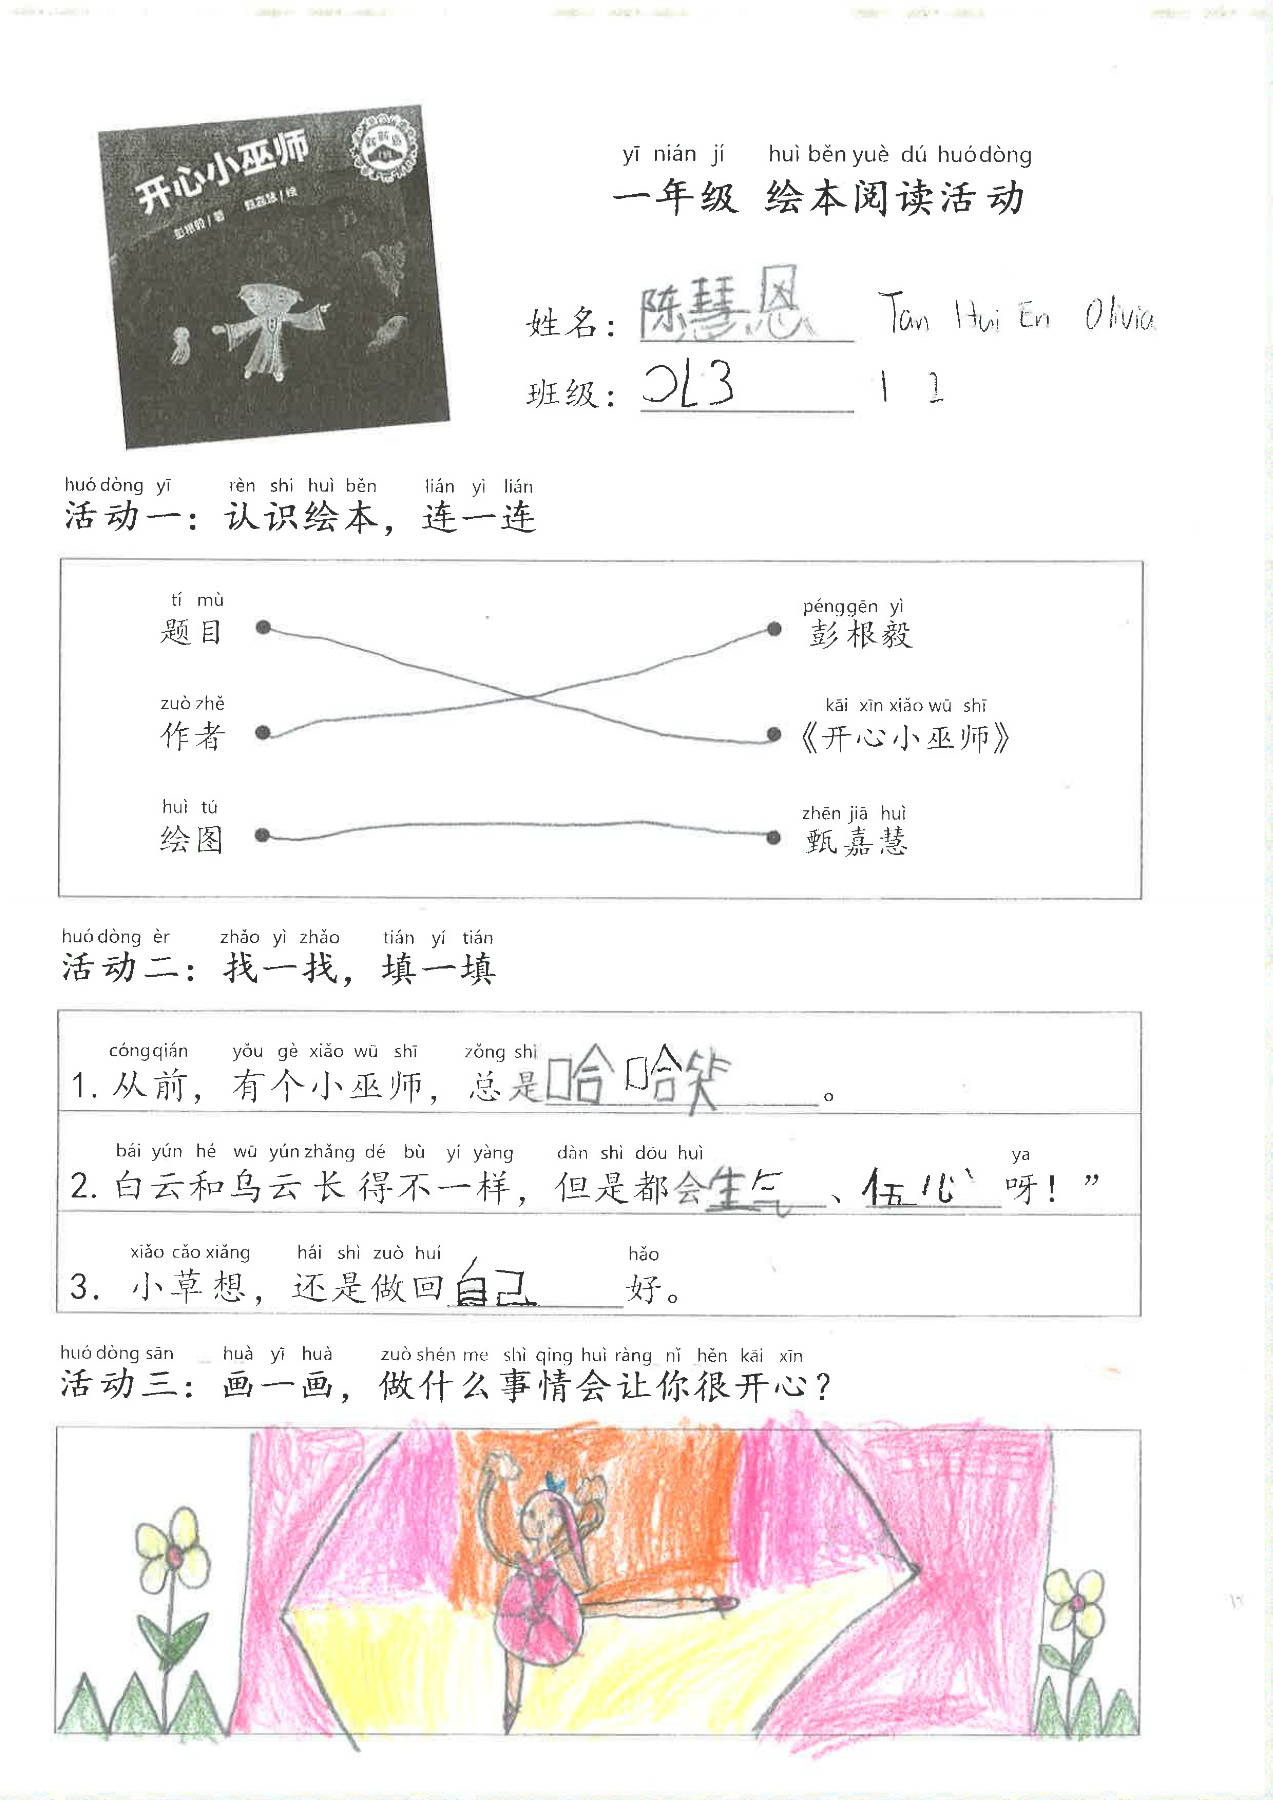 开心小巫师
彭根毅/著 甄嘉慧/绘
yī nián jí huì běn yuè dú huó dòng
一年级 绘本阅读活动
姓名：陈慧恩 Tan Hui En Olivia
班级：
huó dòng yī rèn shi huì běn lián yì lián
活动一：认识绘本，连一连
tí mù
题目
pénggēn yì
彭根毅
zuò zhě
作者
kāi xīn xiǎo wū shī
《开心小巫师》
huì tú
绘图
zhēn jiā huì
甄嘉慧
huó dòng èr zhǎo yì zhǎo tián yí tián
活动二：找一找，填一填
cóngqián yǒu gè xiǎo wū shī zǒng shì
1. 从前，有个小巫师，总是哈哈笑。
bái yún hé wū yún zhǎng dé bù yí yàng dàn shì dōu huì ya
2. 白云和乌云长得不一样，但是都会生气、伍心呀！”
xiǎo cǎo xiǎng hái shì zuò huí hǎo
3. 小草想，还是做回自己好。
huó dòng sān huà yī huà zuò shén me shì qing huì ràng nǐ hěn kāi xīn
活动三：画一画，做什么事情会让你很开心？